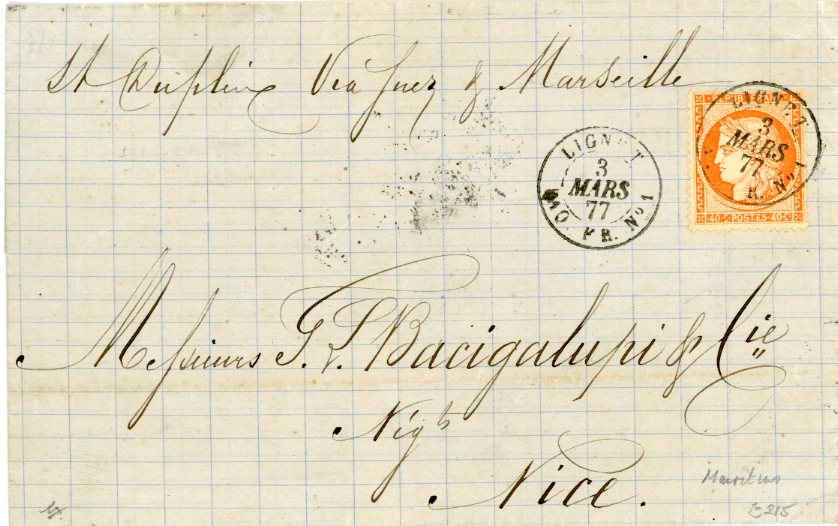 St Dupleix Via Suez & Marseille
REPUB
LIGNE T
3
MARS
77
R. No 1
40 C POSTES 40 C
LIGNE T
3
MARS
77
PAQ. FR. No 1
Messieurs G. Bacigalupi & Cie
Nigts
Nice.
Mauritius
£215